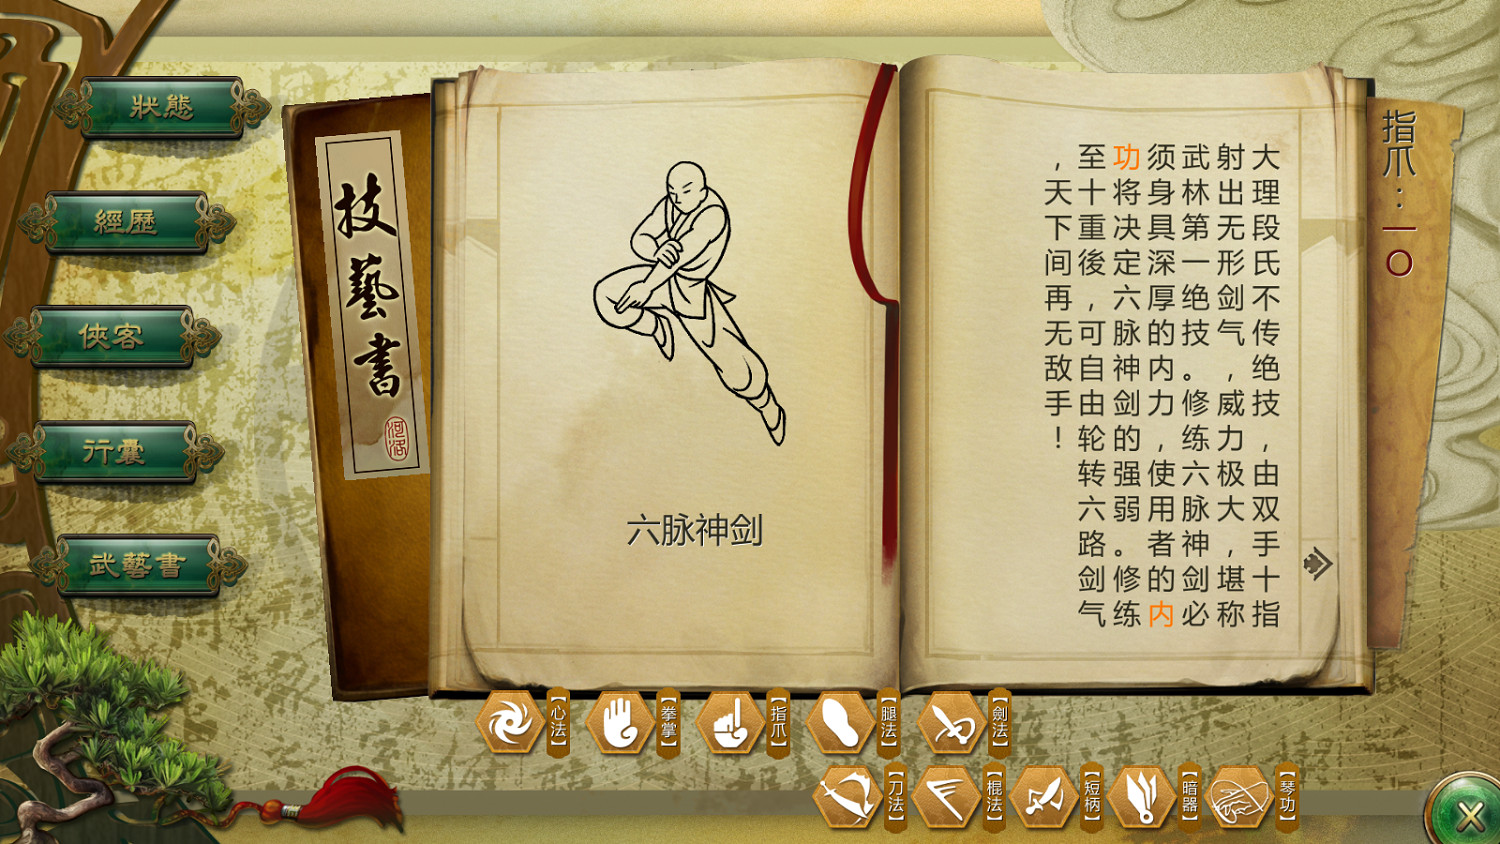 狀態
經歷
俠客
行囊
武藝書
技藝書
河洛
六脉神剑
大理段氏不传绝技，由双手十指
射出无形剑气，威力极大，堪称
武林第一绝技。修练六脉神剑必
须身具深厚的内力，使用者的内
功将决定六脉神剑的强弱。修练
至十重後，可自由轮转六路剑气
，天下间再无敌手！
指爪：一〇
【心法】
【拳掌】
【指爪】
【腿法】
【劍法】
【刀法】
【棍法】
【短柄】
【暗器】
【琴功】